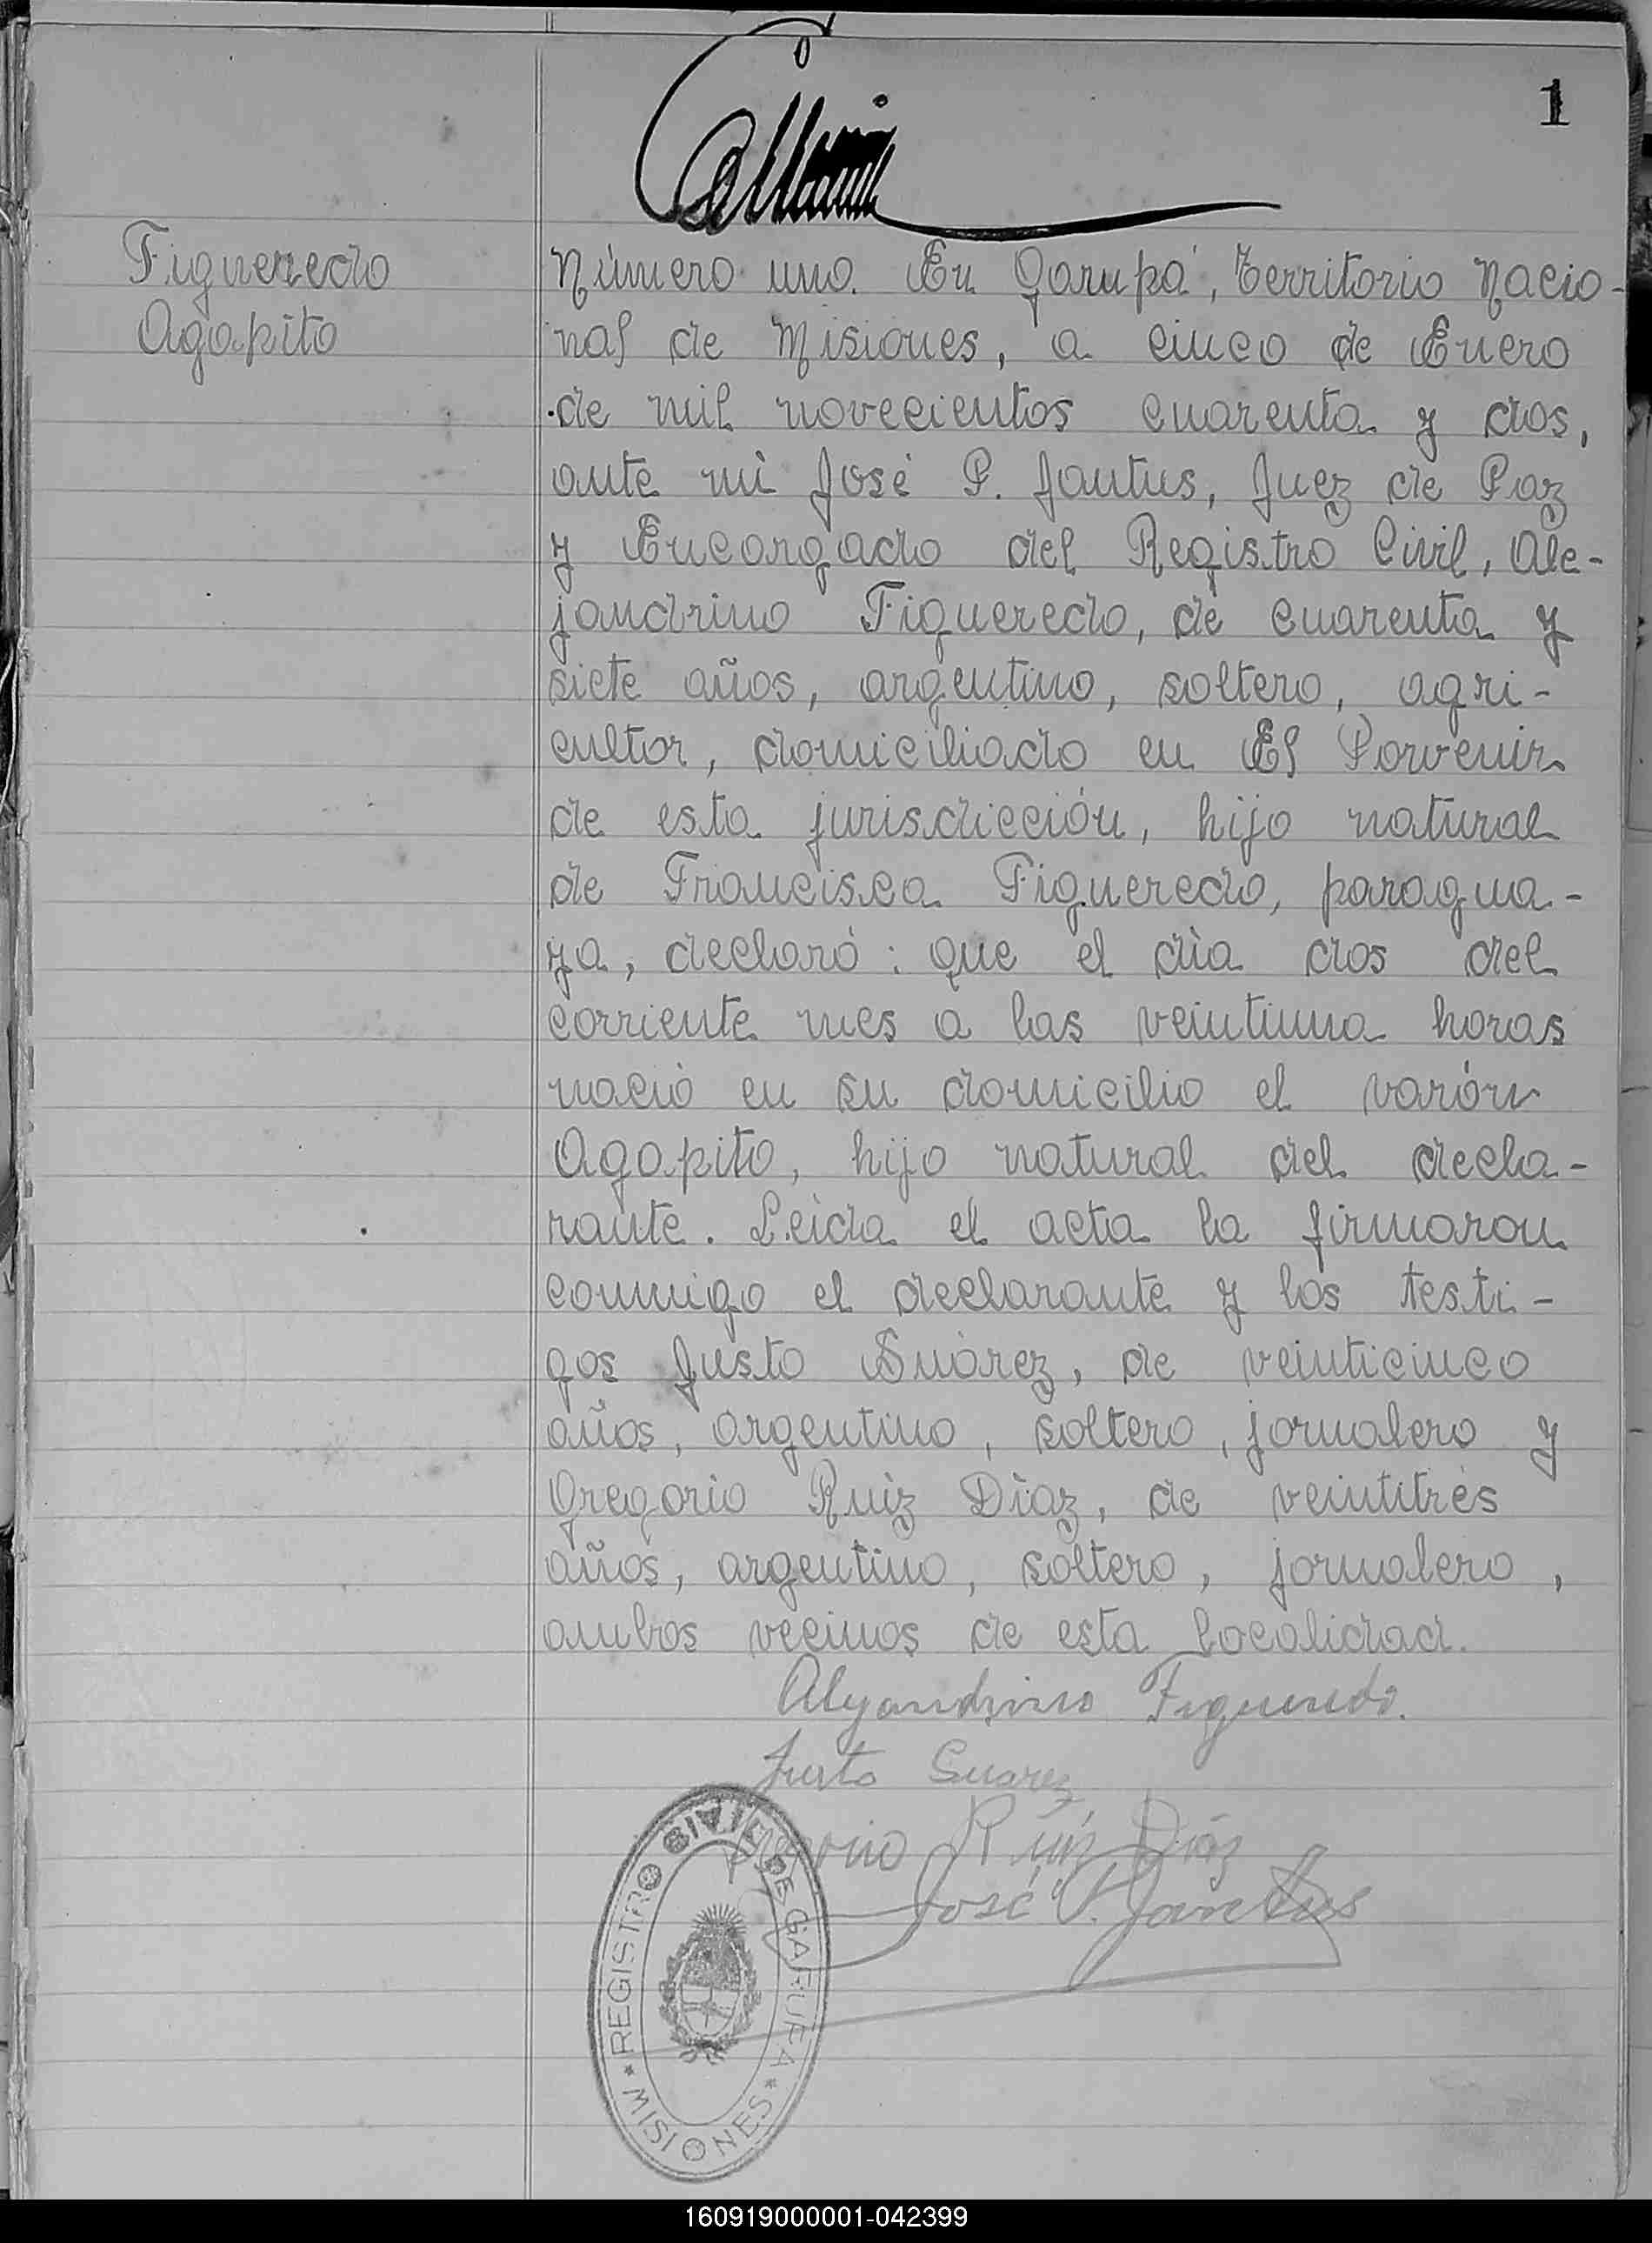 1
Figueredo
Agapito
Número uno. En Garupá, Territorio Nacio-
nal de Misiones, a cinco de Enero
de mil novecientos cuarenta y dos,
ante mi José P. Jantus, Juez de Paz
y Encargado del Registro Civil, Ale-
jandrino Figueredo, de cuarenta y
siete años, argentino, soltero, agri-
cultor, domiciliado en El Porvenir
de esta jurisdicción, hijo natural
de Francisca Figueredo, paragua-
ya, declaró: que el día dos del
corriente mes a las veintiuna horas
nació en su domicilio el varón
Agapito, hijo natural del decla-
rante. Leida el acta la firmaron
conmigo el declarante y los testi-
gos Justo Suárez, de veinticinco
años, argentino, soltero, jornalero y
Gregorio Ruiz Díaz, de veintitrés
años, argentino, soltero, jornalero,
ambos vecinos de esta localidad.
Alejandrino Figueredo.
Justo Suarez
Gregorio Ruiz Díaz
José P. Jantus
REGISTRO CIVIL DE GARUPA
* MISIONES *
160919000001-042399